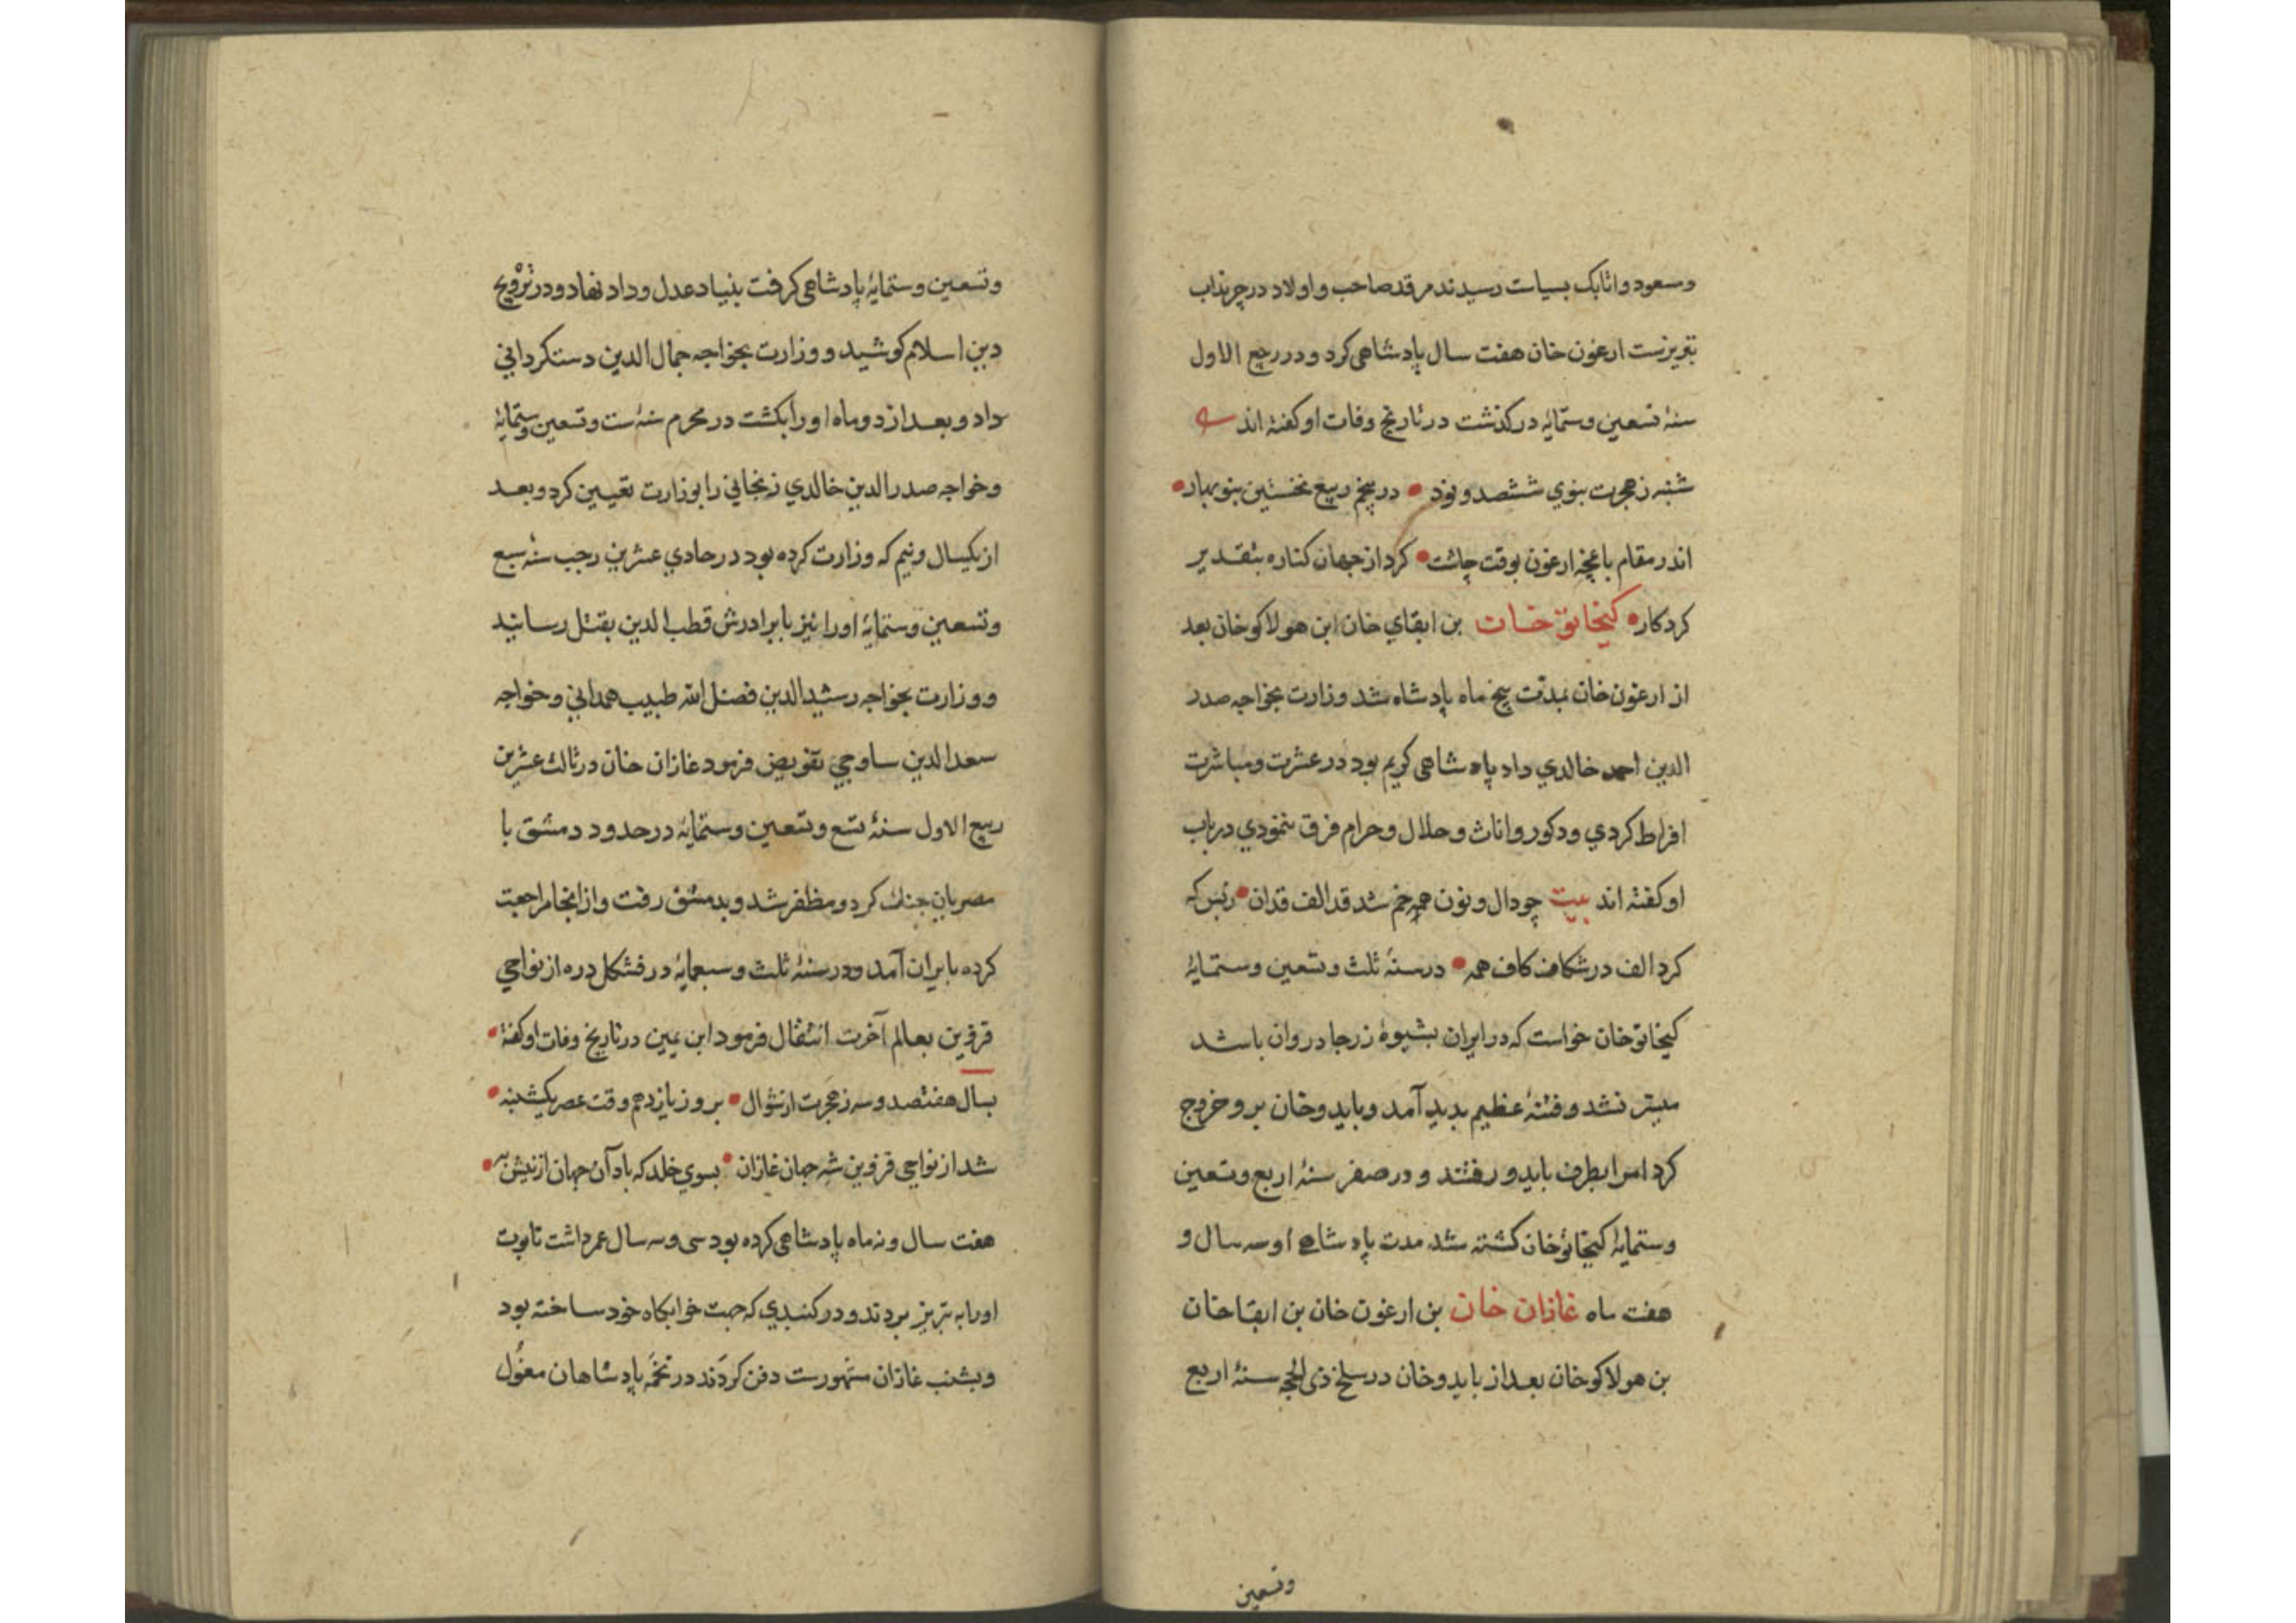 ومسعود واتابک بسیاست رسیدند مرقد صاحب واولاد در چرنداب
تبریزست ارغون خان هفت سال پادشاهی کرد و در ربیع الاول
سنهٔ تسعین وستمایهٔ در کذشت در تاریخ وفات او کفتهٔ اند
شنبه ز هجرت نبوی ششصد و نود در پنجم ربیع نخستین بنوبهار
اندر مقام باغچهٔ ارغون بوقت چاشت کرد از جهان کناره بتقدیر
کردکار کیخاتو خان بن ابقای خان ابن هولاکو خان بعد
از ارغون خان بمدت پنج ماه پادشاه شد وزارت بخواجه صدر
الدین احمد خالدی داد پادشاهی کریم بود در عشرت ومباشرت
افراط کردی وذکور واناث وحلال وحرام فرق ننمودی در باب
او کفتهٔ اند بیت چو دال و نون همه خم شد قد الف قدان ز بس که
کرد الف در شکاف کاف همه در سنهٔ ثلث وتسعین وستمایهٔ
کیخاتو خان خواست که در ایران بشیوهٔ زر جادر وان باشد
میسر نشد وفتنهٔ عظیم بدید آمد وبایدو خان برو خروج
کرد امرا بطرف بایدو رفتند و در صفر سنهٔ اربع وتسعین
وستمایهٔ کیخاتو خان کشته شد مدت پادشاهی او سه سال و
هفت ماه غازان خان بن ارغون خان بن ابقا خان
بن هولاکو خان بعد از بایدو خان در سلخ ذی الحجه سنهٔ اربع
وتسعین
وتسعین وستمایهٔ پادشاهی کرفت بنیاد عدل وداد نهاد ودر ترویج
دین اسلام کوشید و وزارت بخواجه جمال الدین دستکردانی
داد و بعد از دو ماه او را بکشت در محرم سنهٔ ست وتسعین وستمایهٔ
وخواجه صدر الدین خالدی زنجانی را بوزارت تعیین کرد وبعد
از یکسال ونیم که وزارت کرده بود در حادی عشرین رجب سنهٔ سبع
وتسعین وستمایهٔ او را نیز با برادرش قطب الدین بقتل رسانید
ووزارت بخواجه رشید الدین فضل الله طبیب همدانی وخواجه
سعد الدین ساوجی تفویض فرمود غازان خان در ثالث عشرین
ربیع الاول سنهٔ تسع وتسعین وستمایهٔ در حدود دمشق با
مصریان جنک کرد ومظفر شد وبدمشق رفت واز انجا مراجعت
کرده بایران آمد ودر سنهٔ ثلث وسبعمایهٔ در فشکل دره از نواحی
قزوین بعالم آخرت انتقال فرمود ابن یمین در تاریخ وفات او کفتهٔ
بسال هفتصد وسه ز هجرت از شوال بروز یازدهم وقت عصر یکشنبه
شد از نواحی قزوین شه جهان غازان بسوی خلد که باد آن جهان ازینش به
هفت سال ونه ماه پادشاهی کرده بود سی وسه سال عمر داشت تابوت
او را به تبریز بردند ودر کنبدی که جهت خوابکاه خود ساخته بود
وبشنب غازان مشهورست دفن کردند در تخمهٔ پادشاهان مغول